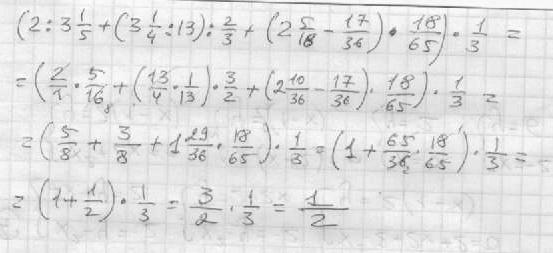 (2:3 1/5 + (3 1/4 :13) : 2/3 + (2 5/18 - 17/36) · 18/65) · 1/3 =
= (2/1 · 5/16 + (13/4 · 1/13) · 3/2 + (2 10/36 - 17/36) · 18/65) · 1/3 =
= (5/8 + 3/8 + 1 29/36 · 18/65) · 1/3 = (1 + 65/36 · 18/65) · 1/3 =
= (1 + 1/2) · 1/3 = 3/2 · 1/3 = 1/2